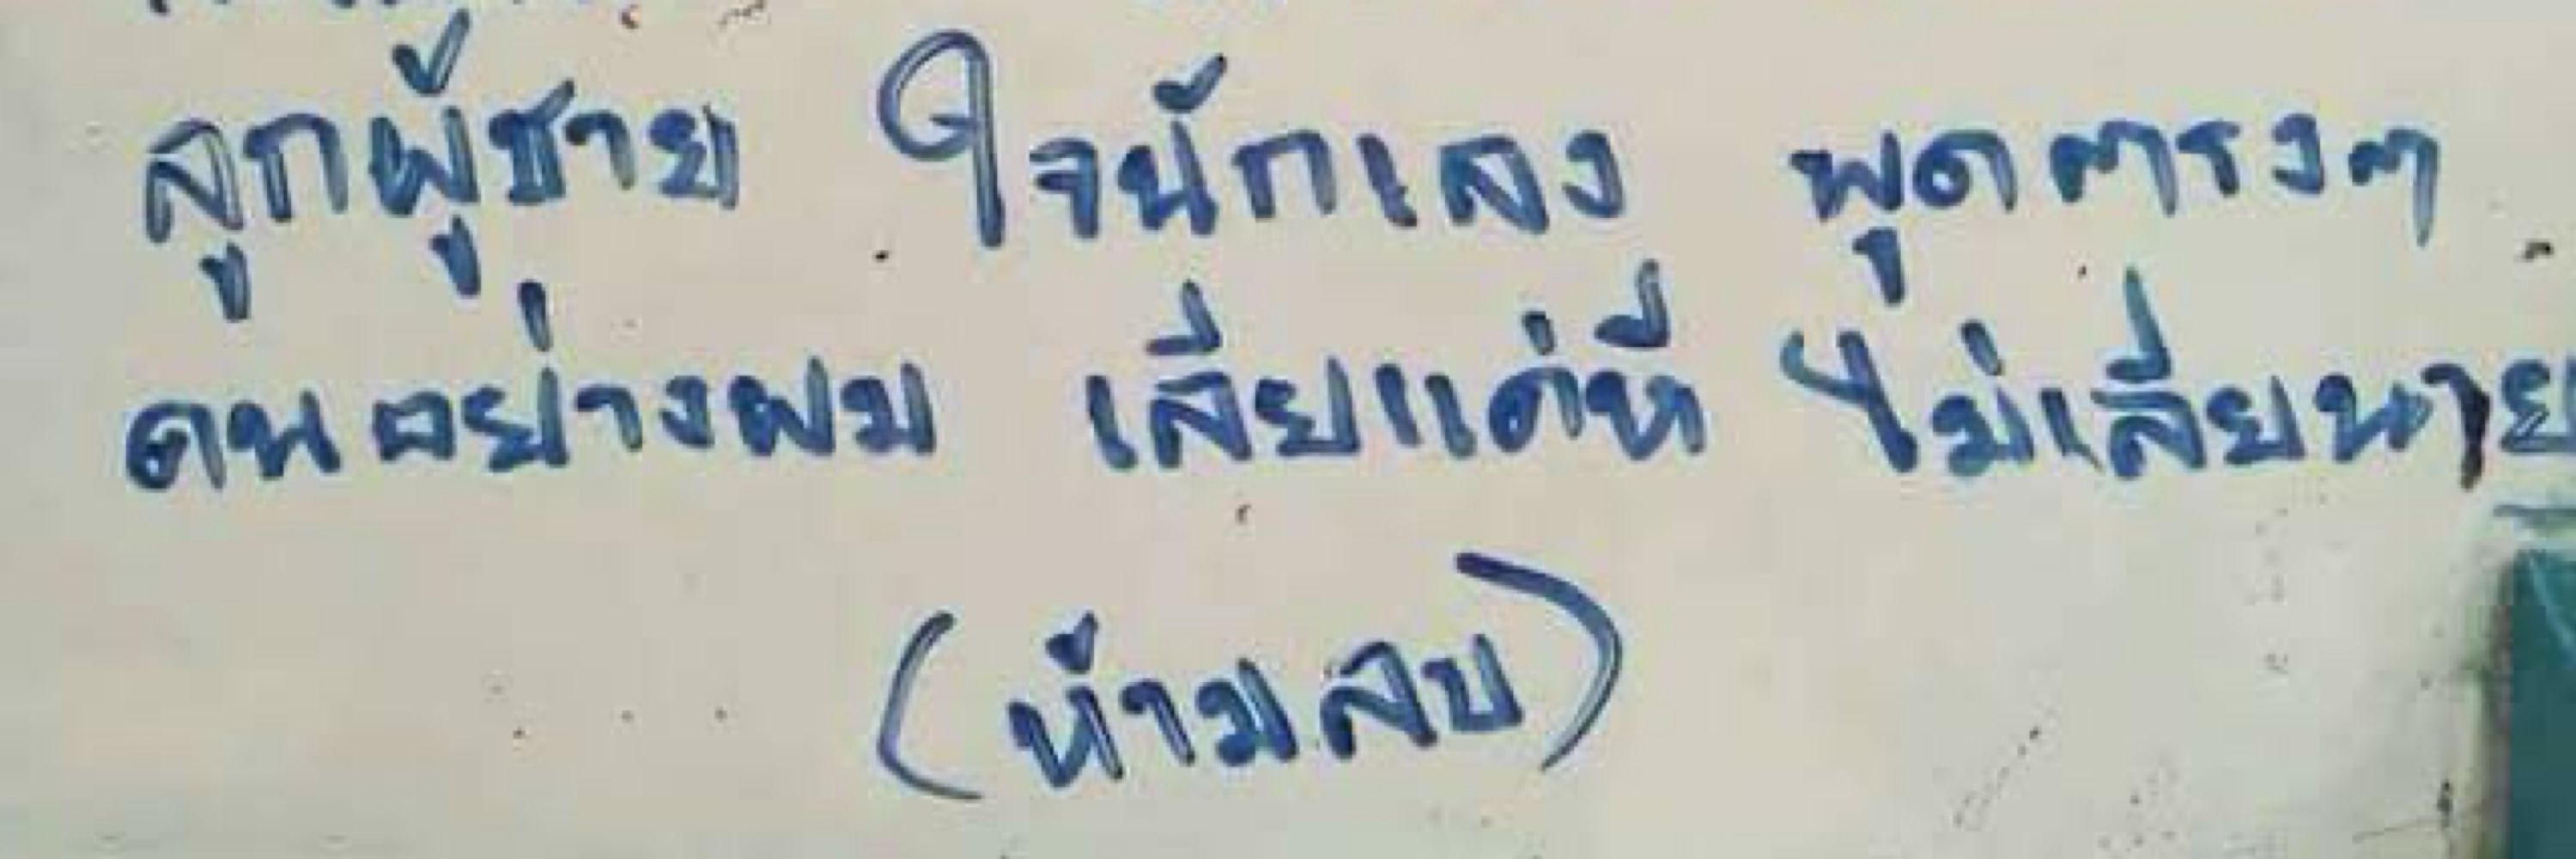 ลูกผู้ชาย ใจนักเลง พูดตรงๆ
คนอย่างผม เลียแค่หี ไม่เลียนาย
(ห้ามลบ)